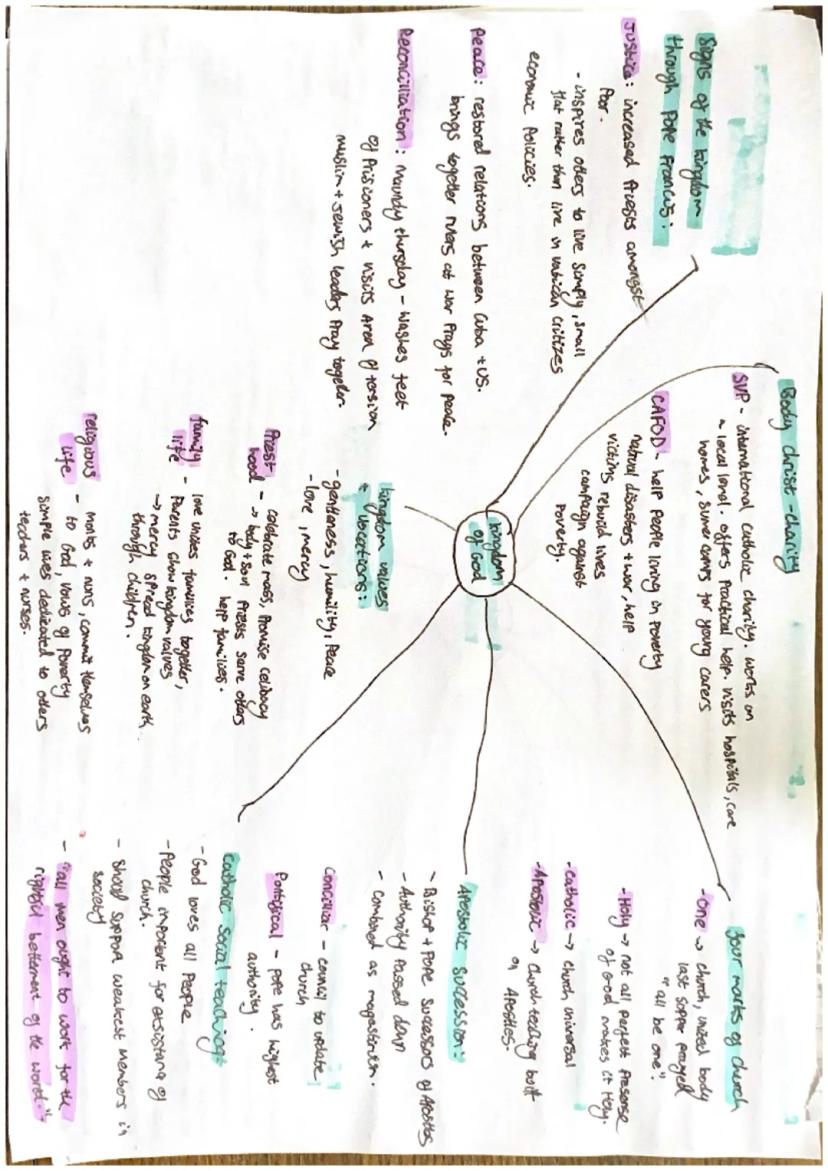 Signs of the kingdom
through Pope Francis:
Justice: increased Priests amongst
Poor.
- inspires others to live simply, small
flat rather than live in vatican critizes
economic Policies.
Peace: restored relations between Cuba + US.
brings together rulers at war Prays for peace.
Reconciliation: Maundy thursday - washes feet
of Prisioners + visits Area of tension
muslim + Jewish leaders Pray together.
Body christ - charity
SVP - international catholic charity. works on
a local level. offers Practical help. visits hospitals, care
homes, summer camps for young carers
CAFOD - help people living in poverty
natural disasters + war, help
victims rebuild lives
campaign against
Poverty.
kingdom
of God
kingdom values
+ vocations:
- gentleness, humility, Peace
- love, mercy
Priest
hood - celebrate mass, Promise celibacy
→ body + soul Priests serve others
to God. help families.
family
life - love unites families together,
Parents show kingdom values
→ mercy spread kingdom on earth
through children.
religious
life - monks + nuns, commit themselves
- to God, vows of Poverty
simple lives dedicated to others
teachers + nurses.
four marks of church
- one → church, united body
last supper prayed
"all be one".
- Holy → not all perfect Presense
of God makes it Holy.
- Catholic → church universal
- Apostolic → Church teaching built
on Apostles.
Apostolic succession:
- Bishop + Pope successors of Apostles
- Authority Passed down
- Combined as magesterium.
Conciliar - council to update
church
Pontifical - pope has highest
authority.
Catholic social teaching
- God loves all People
- People imporent for assisting of
church.
- Should support weakest members in
society
- "all men ought to work for the
rightful betterment of the world."